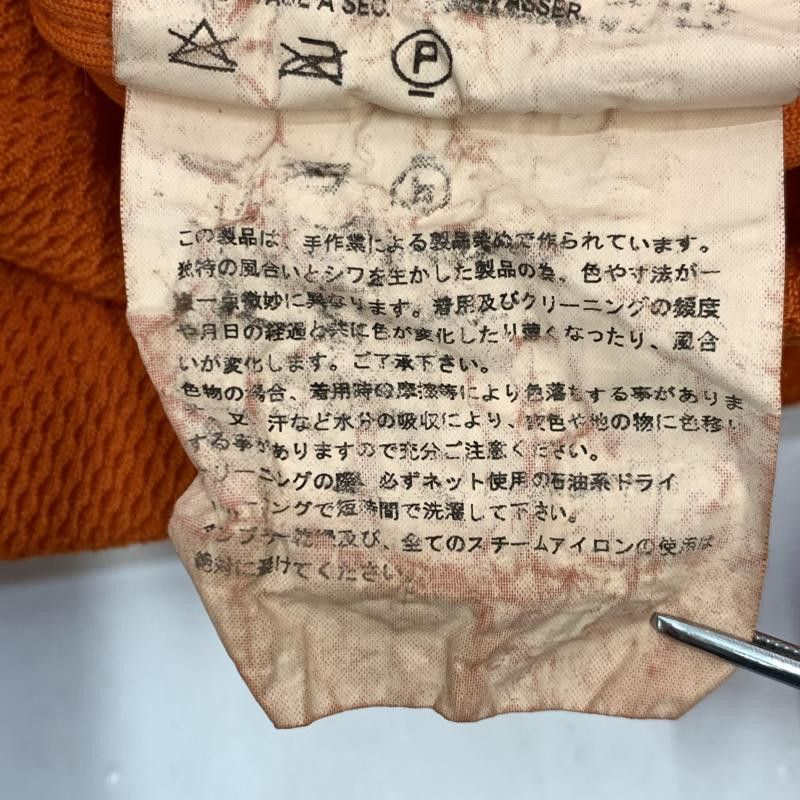 A SEC.
P
この製品は、手作業による製品染めで作られています。
独特の風合いとシワを生かした製品の為、色や寸法が一
点一点微妙に異なります。着用及びクリーニングの頻度
や月日の経過と共に色が変化したり薄くなったり、風合
いが変化します。ご了承下さい。
色物の場合、着用時の摩擦等により色落ちする事がありま
又 汗など水分の吸収により、淡色や他の物に色移り
する事がありますので充分ご注意ください。
クリーニングの際、必ずネット使用の石油系ドライ
ーニングで短時間で洗濯して下さい。
タンブラー乾燥及び、全てのスチームアイロンの使用は
絶対に避けてください。